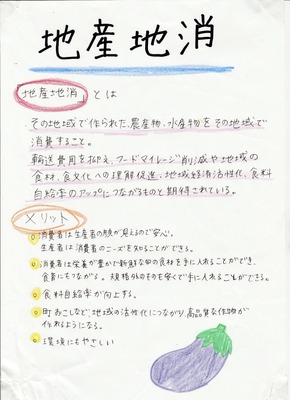 地産地消
「地産地消」とは
その地域で作られた農産物、水産物をその地域で
消費すること。
輸送費用を抑え、フードマイレージ削減や地域の
食材、食文化への理解促進、地域経済活性化、食料
自給率のアップにつながるものと期待されている。
メリット
消費者は生産者の顔が見えるので安心。
生産者は消費者のニーズを知ることができる。
消費者は栄養が豊かで新鮮な旬の食材を手に入れることができ、
食育にもつながる。規格外のものを安くで手に入れることができる。
食料自給率が向上する。
町おこしなど、地域の活性化につながり、高品質な作物が
作れるようになる。
環境にもやさしい